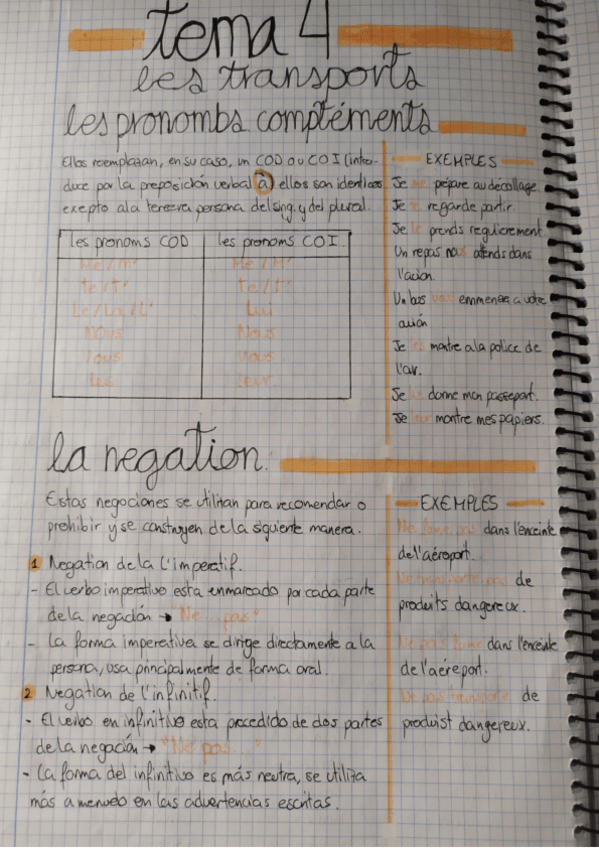 tema 4
les transports
les pronombs compléments
Ellos reemplazan, en su caso, un COD ou COI (intro-
duce por la preposición verbal à) ellos son identicos
exepto a la tercera persona del sing. y del plural.
les pronoms COD les pronoms COI
Me / m' Me / M'
te / t' te / t'
Le / La / L' Lui
Nous Nous
Vous Vous
Les Leur
EXEMPLES
Je me prépare au décollage
Je te regarde partir.
Je le prends regulierement
Un repas nous attends dans
l'acion.
Un bus vous emmenea a vote
avión
Je les montre a la police de
l'air.
Je donne mon passeport.
Je leur montre mes papiers.
la negation.
Estas negociones se utilitan para recomendar o
prohibir y se construyen de la siguiente manera.
1 Negation de la L'imperatif.
- El verbo imperativo esta enmarcado por cada parte
de la negación → "Ne ... pas"
- La forma imperativa se dirige directamente a la
persona, usa principalmente de forma oral.
2 Negation de l'infinitif.
- El verbo en infinitivo esta procedido de dos partes
de la negación → "Ne pas ..."
- La forma del infinitivo es más neutra, se utiliza
más a menudo en las advertencias escritas.
EXEMPLES
Ne fume pas dans l'enceinte
de l'aéroport.
Ne transporte pas de
produits dangereux.
Ne pas fume dans l'enceinte
de l'aéreport.
Ne pas transporte de
produist dangereux.